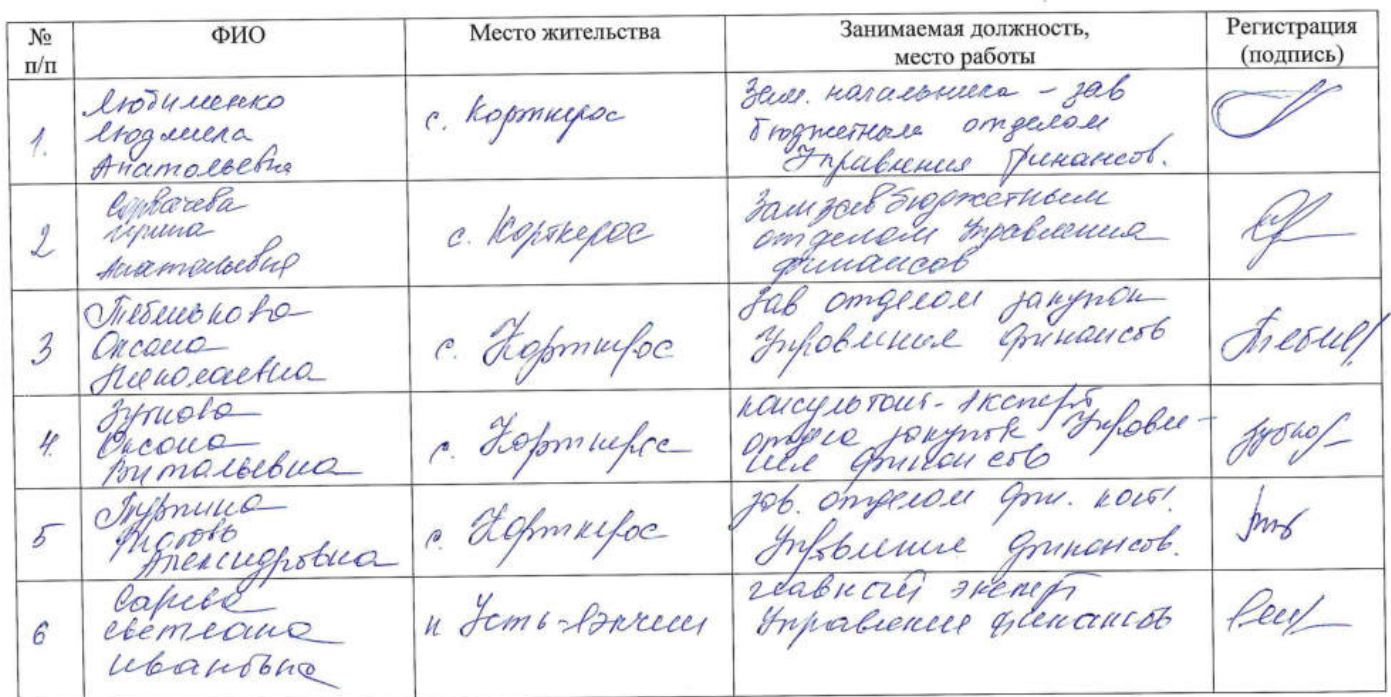 № п/п
ФИО
Место жительства
Занимаемая должность, место работы
Регистрация (подпись)
1.
Любименко
Людмила
Анатольевна
с. Корткерос
Зам. начальника - зав
бюджетным отделом
Управления финансов.
2
Сорвачева
Ирина
Анатольевна
с. Корткерос
Зам зав бюджетным
отделом Управления
финансов
3
Оксана
Николаевна
с. Корткерос
Зав отделом закупок
Управления финансов
4.
Зубкова
Оксана
Витальевна
с. Корткерос
консультант-эксперт
отдела закупок Управле-
ния финансов
5
Любовь
Александровна
с. Корткерос
зав. отделом фин. конт.
Управления финансов.
6
Светлана
Ивановна
п Усть-Лэкчим
главный эксперт
Управления финансов